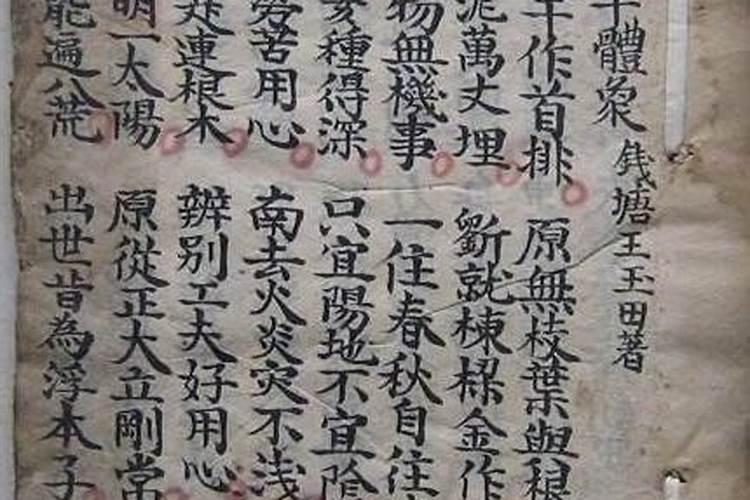 干體象 錢塘王玉田著
干作首排 原無枝葉與根
泥萬丈埋 斲就棟樑金作
物無機事 一住春秋自住
種得深 只宜陽地不宜陰
苦用心 南去火炎灾不浅
連根木 辨别工夫好用心
明一太陽 原從正大立剛常
能遍八荒 出世皆為浮本子